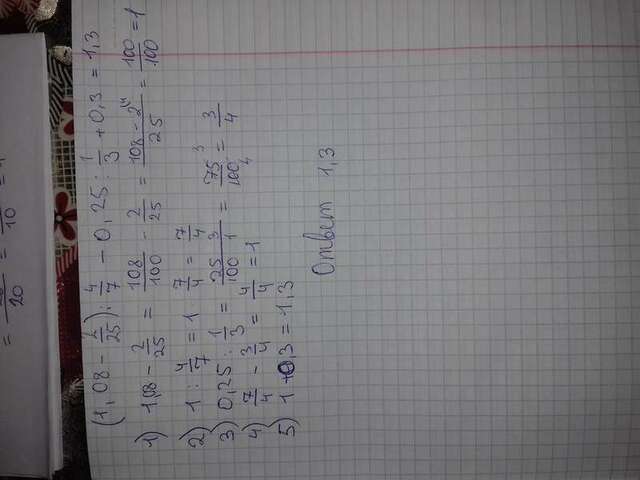 = /20 = /10 = 1
(1,08 - 2/25) : 4/7 - 0,25 : 1/3 + 0,3 = 1,3
1) 1,08 - 2/25 = 108/100 - 2/25 = 108 - 2^4/25 = 100/100 = 1
2) 1 : 4/7 = 1 7/4 = 7/4
3) 0,25 : 1/3 = 25 3/100 1 = 75 3/100 4 = 3/4
4) 7/4 - 3/4 = 4/4 = 1
5) 1 + 0,3 = 1,3
Ответ 1,3